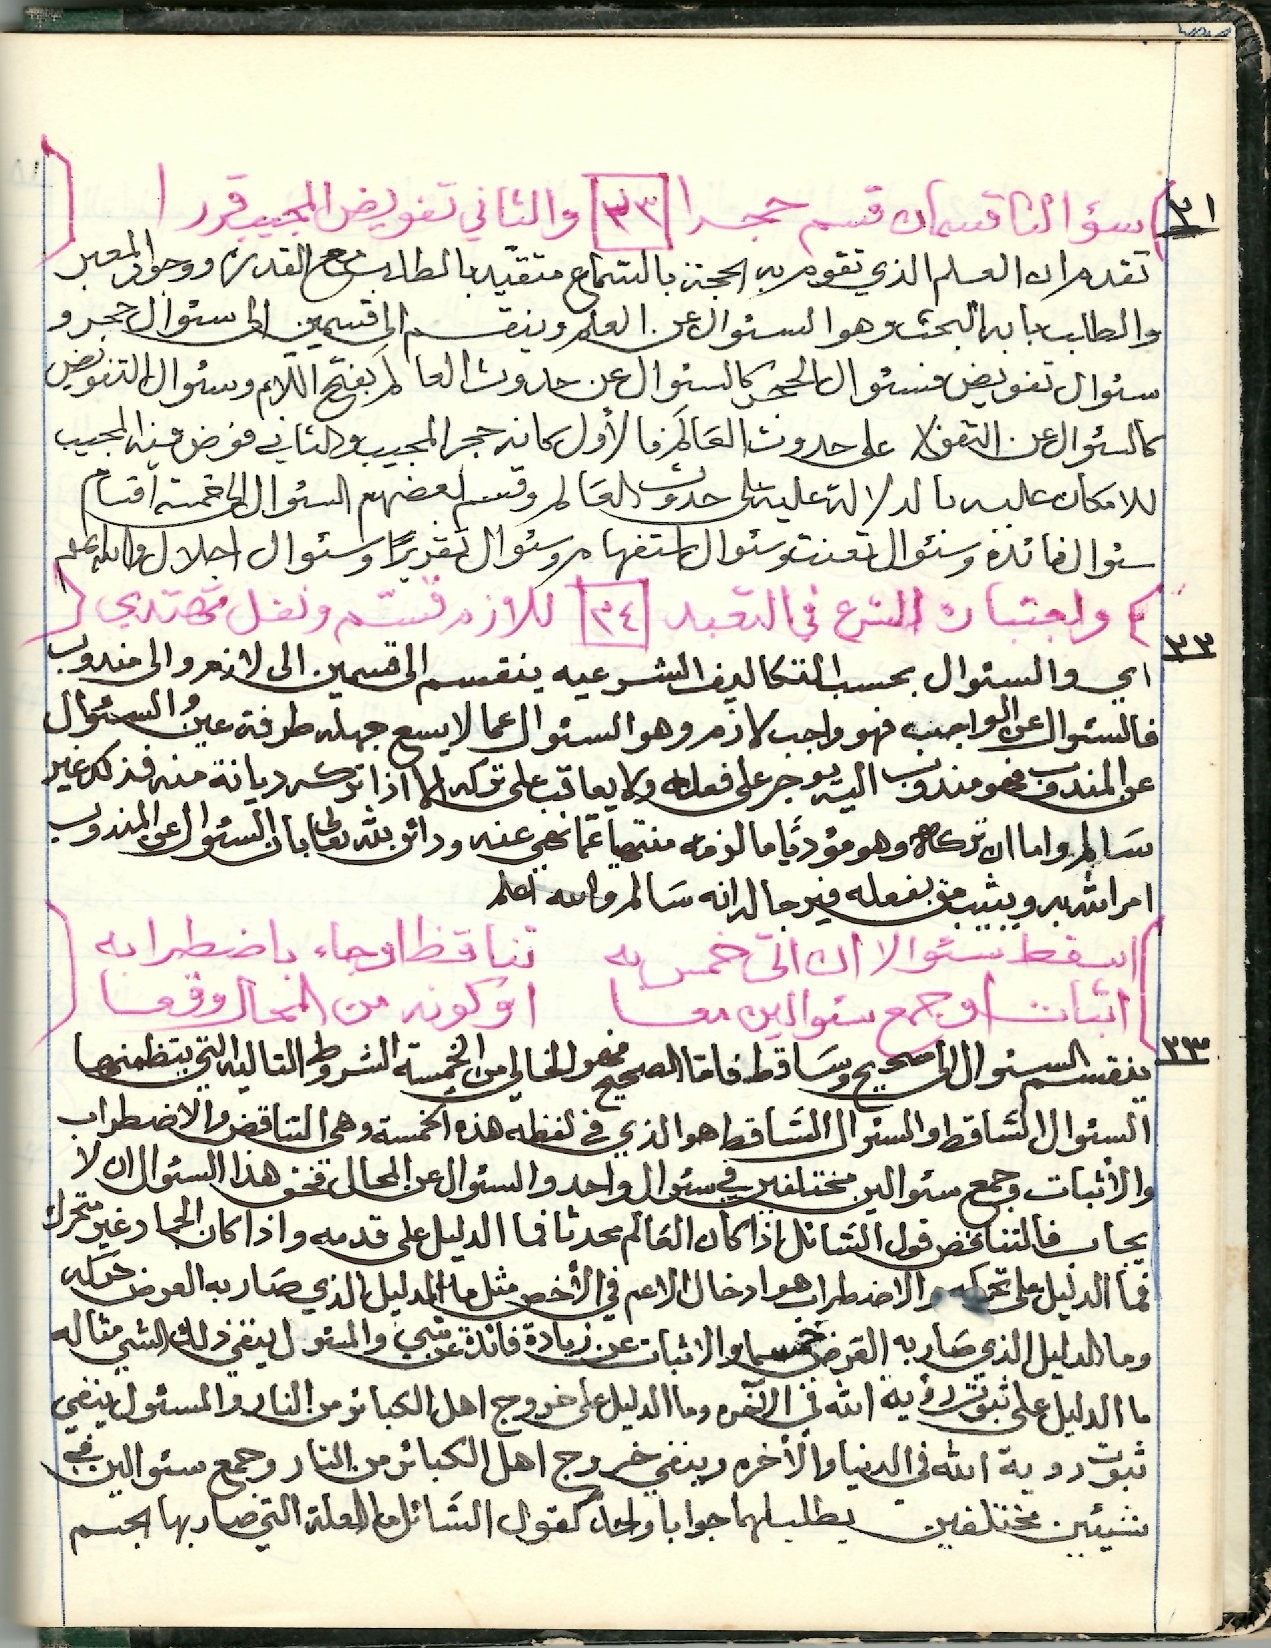 ٣١ سؤالنا قسمان قسم حجرا ٣٣ والثاني تفويض المجيب قررا
تقدم ان العلم الذي تقوم به الحجة بالسماع متقيد بالطلب مع القدرة ووجود المعبر
والطلب بابه البحث وهو السئوال عن العلم وينقسم الى قسمين الى سئوال حجر و
سئوال تفويض فسئوال الحجر كالسئوال عن حدوث العالم بفتح اللام وسئوال التفويض
كالسئوال عن على حدوث العالم فالأول كانه حجر المجيب والثاني فوض فيه المجيب
للامكان عليه بالدلالة على حدوث العالم وقسم بعضهم السئوال الى خمسة أقسام
سئوال فائدة وسئوال تعنت وسئوال استفهام وسئوال تقريرًا وسئوال اجلال والله اعلم
٣٢ واجتبان الشرع في التعبد ٣٤ للازم قسّم ونفل تهتدي
اي والسئوال بحسب التكاليف الشرعيه ينقسم الى قسمين الى لازم والى مندوب
فالسئوال عن الواجب فهو واجب لازم وهو السئوال عما لا يسع جهله طرفة عين والسئوال
عن المندوب فهو مندوب اليه يوجر على فعله ولا يعاقب على تركه الا اذا تركه ديانة منه فذلك غير
سالم واما ان تركه وهو مؤديًا ما لزمه منتهيا عمّا نهي عنه ودائن لله تعالى بان السئوال عن المندوب
امر الله به ويثيب من يفعله فيرجا له انه سالم والله اعلم
اسقط سئوالا ان اتى خمس به تناقظ او جاء باضطرابه
٣٣ اثبات او جمع سئوالين معا او كونه من المحال وقعا
ينقسم السئوال الى صحيح وساقط فاما الصحيح فهو الخالي من الخمسة الشروط التاليه التي يتظمنها
السئوال الساقط والسئوال الساقط هو الذي في لفظه هذه الخمسة وهي التناقض والاضطراب
والاثبات وجمع سئوالين مختلفين في سئوال واحد والسئوال عن المحال فحق هذا السئوال ان لا
يجاب فالتناقض قول السائل اذا كان العالم محدثا فما الدليل على قدمه واذا كان الجماد غير متحرك
فما الدليل على تحركه والاضطراب هو ادخال الاعم في الأخص مثل ما الدليل الذي صار به العرض حركه
وما الدليل الذي صار به العرض جسما والاثبات عن زيادة فائدة عن شيء والمسئول ينفي ذلك الشيء مثاله
ما الدليل على ثبوت رؤية الله في الآخره وما الدليل على خروج اهل الكبائر من النار والمسئول ينفي
ثبوت روية الله في الدنيا والأخره وينفي خروج اهل الكبائر من النار وجمع سئوالين في
شيئين مختلفين يطلب لهما جوابا واحدا كقول السائل ما العلة التي صار بها الجسم